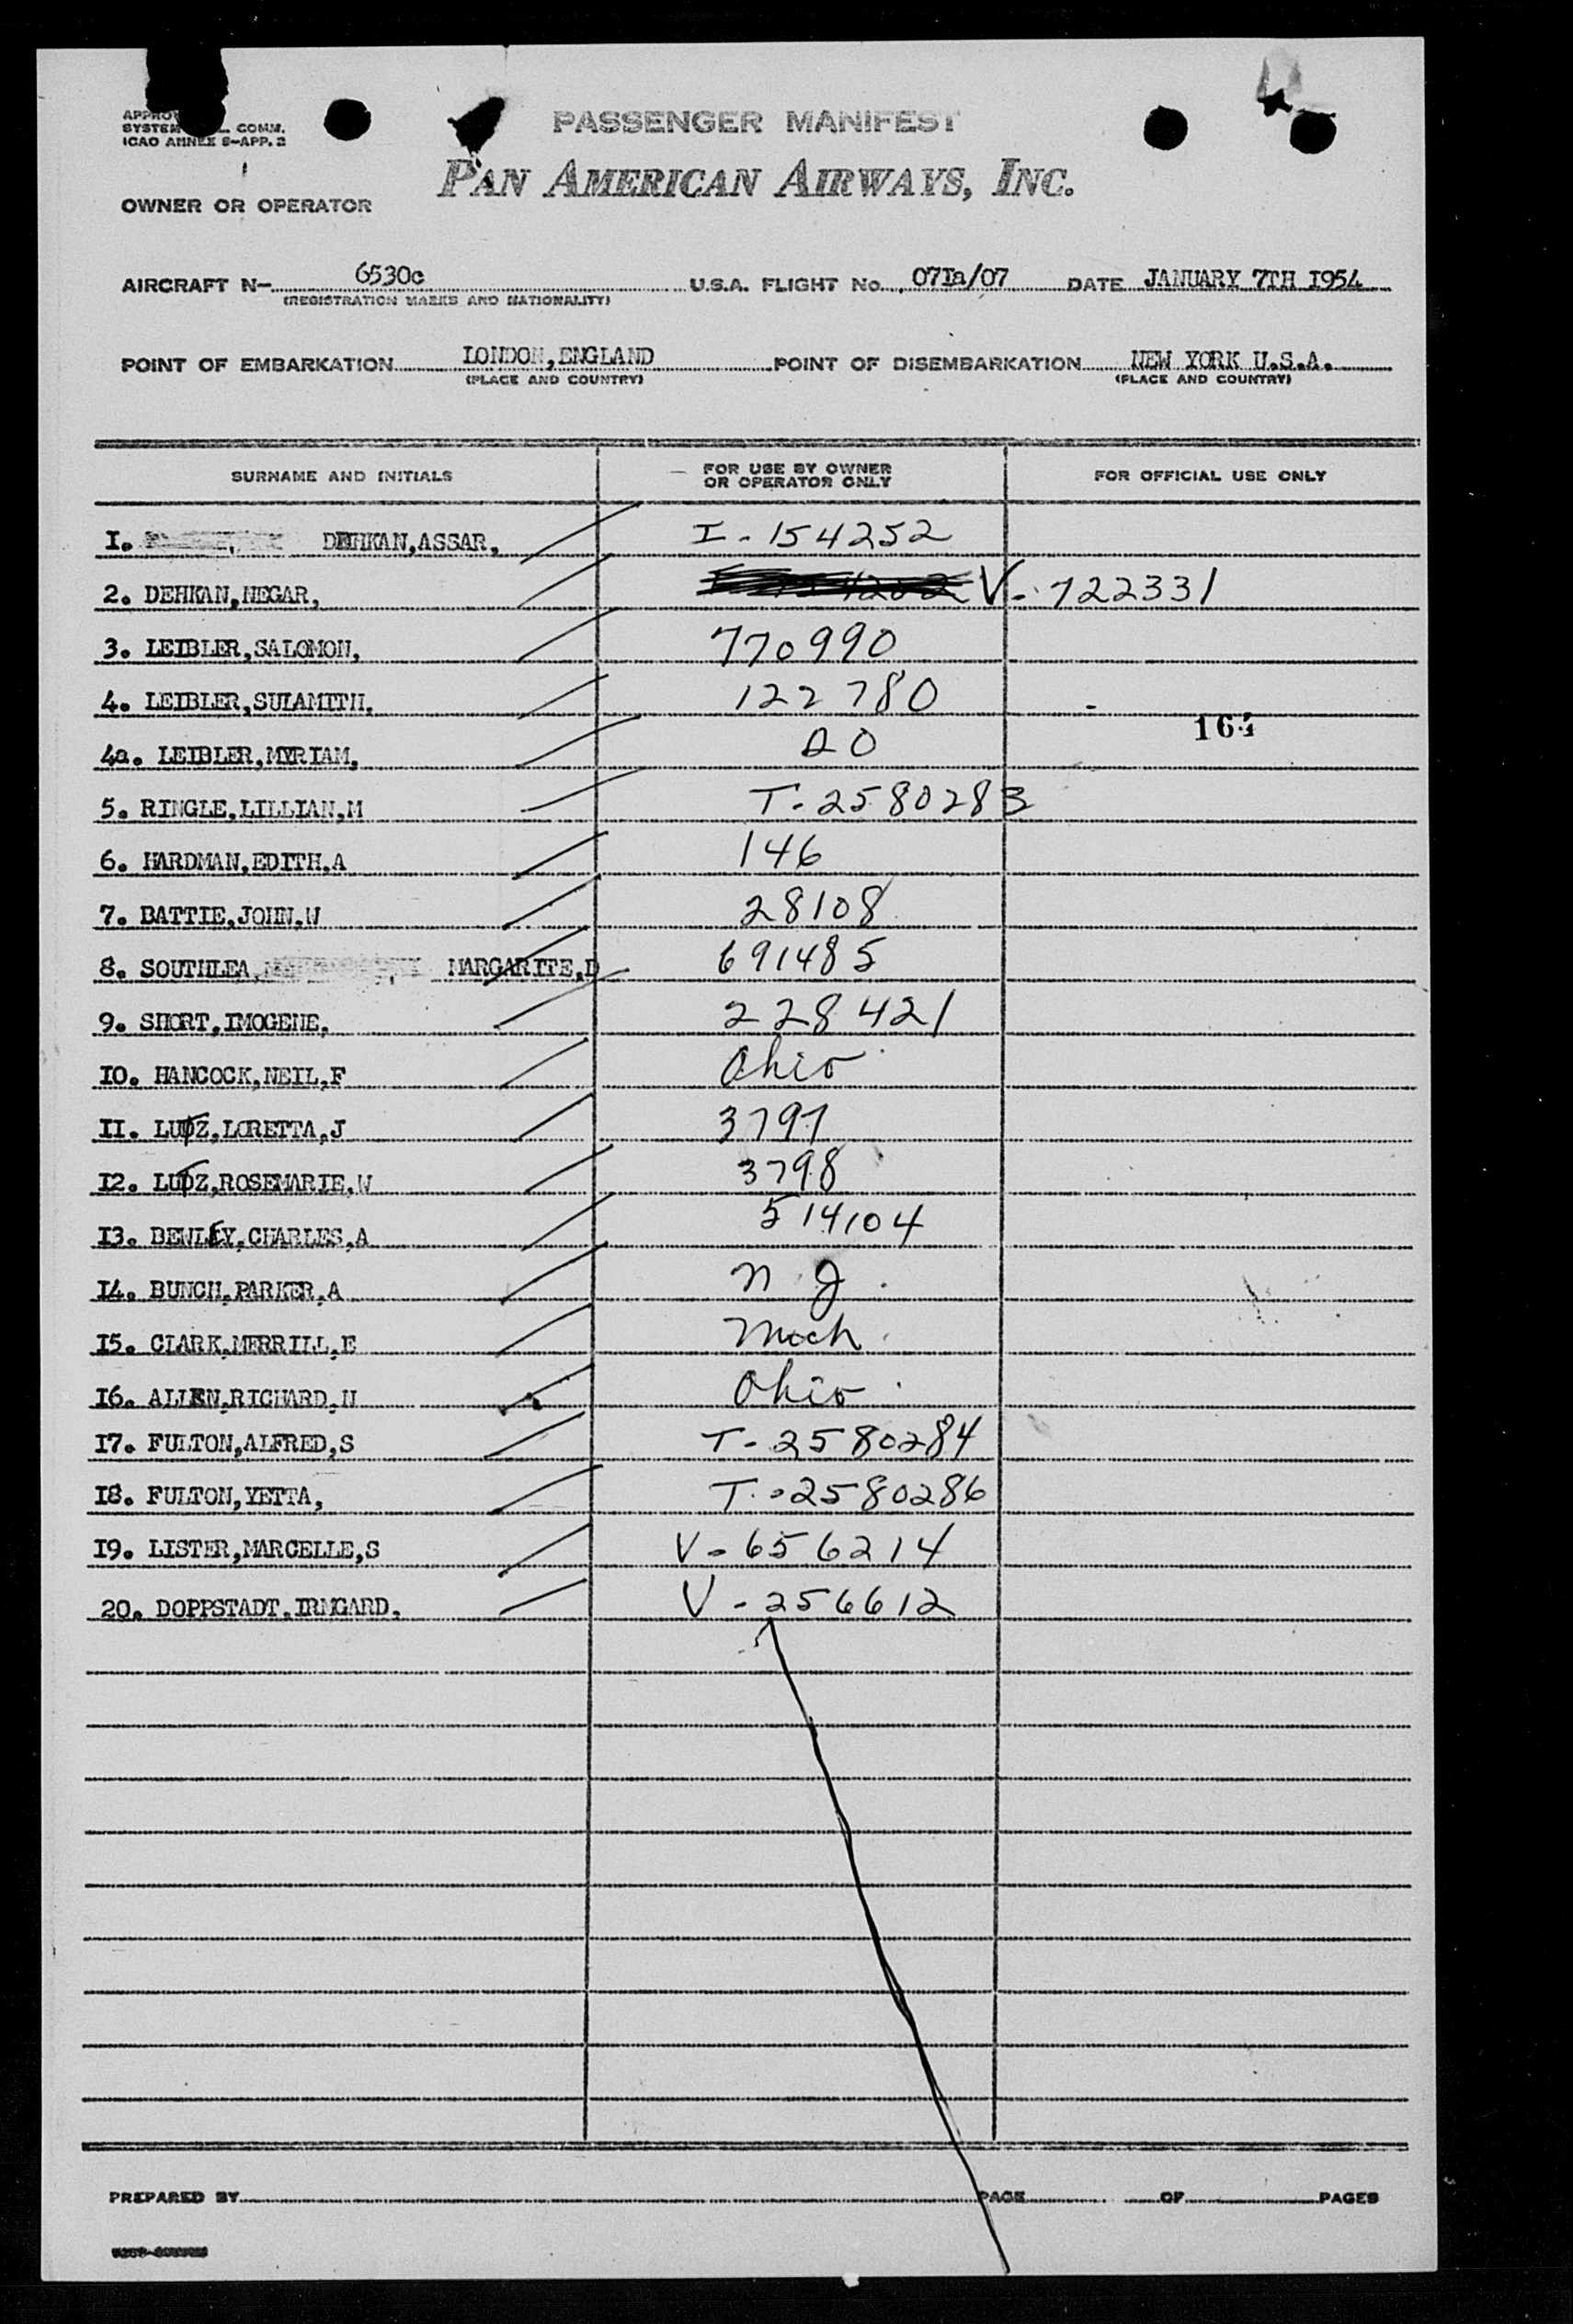 PASSENGER MANIFEST
COMM.
ICAO ANNEX 8-APP. 2
PAN AMERICAN AIRWAYS, INC.
OWNER OR OPERATOR
AIRCRAFT N- 6530c U.S.A. FLIGHT No. 07Ia/07 DATE JANUARY 7TH I954
(REGISTRATION MARKS AND NATIONALITY)
POINT OF EMBARKATION LONDON,ENGLAND POINT OF DISEMBARKATION NEW YORK U.S.A.
(PLACE AND COUNTRY) (PLACE AND COUNTRY)
SURNAME AND INITIALS FOR USE BY OWNER OR OPERATOR ONLY FOR OFFICIAL USE ONLY
I. DEHKAN,ASSAR, I-154252
2. DEHKAN,NEGAR, V-722331
3. LEIBLER,SALOMON, 770990
4. LEIBLER,SULAMITH, 122780
164
4a. LEIBLER,MYRIAM, DO
5. RINGLE,LILLIAN,M T-2580283
6. HARDMAN,EDITH,A 146
7. BATTIE,JOHN,W 28108
8. SOUTHLEA, MARGARITE,D 691485
9. SHORT,IMOGENE, 228421
IO. HANCOCK,NEIL,F Ohio
II. LUTZ,LORETTA,J 3797
I2. LUTZ,ROSEMARIE,W 3798
I3. BEWLEY,CHARLES,A 514104
I4. BUNCH,PARKER,A N.J.
I5. CLARK,MERRILL,E Mich
I6. ALLEN,RICHARD,N Ohio
I7. FULTON,ALFRED,S T-2580284
I8. FULTON,YETTA, T-2580286
I9. LISTER,MARCELLE,S V-656214
20. DOPPSTADT,IRMGARD, V-256612
PREPARED BY PAGE OF PAGES